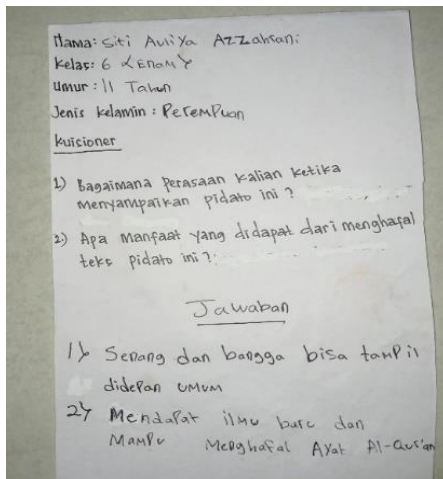 Nama: Siti Auliya Azzahrani
Kelas: 6 <Enam>
Umur : 11 Tahun
Jenis kelamin : Perempuan
kuisioner
1) Bagaimana perasaan kalian ketika
menyampaikan pidato ini ?
2) Apa manfaat yang didapat dari menghafal
teks pidato ini ?
Jawaban
1) Senang dan bangga bisa tampil
didepan umum
2) Mendapat ilmu baru dan
Mampu Menghafal Ayat Al-Qur'an